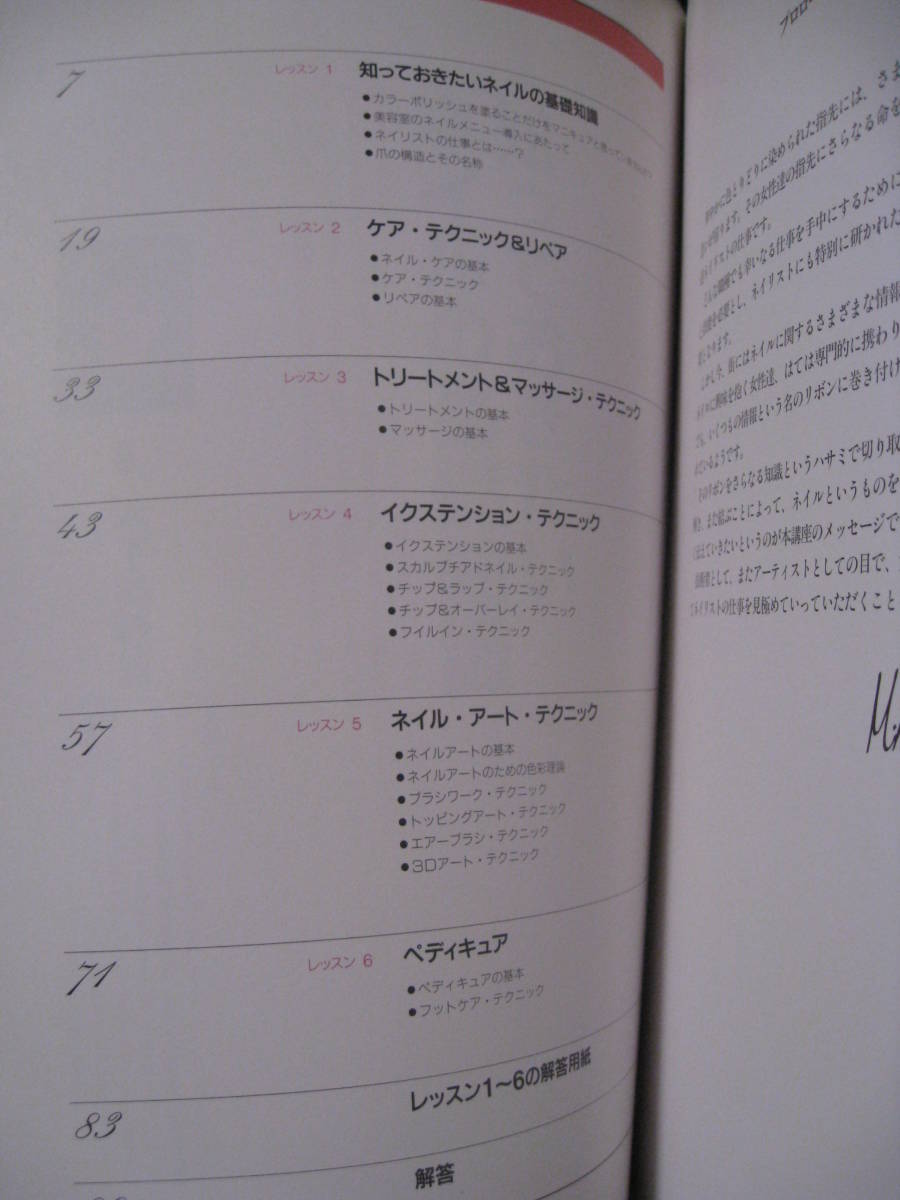 7 レッスン 1 知っておきたいネイルの基礎知識
●カラーポリッシュを塗ることだけをマニキュアと思っていませんか?
●美容室のネイルメニュー導入にあたって
●ネイリストの仕事とは……?
●爪の構造とその名称
19 レッスン 2 ケア・テクニック&リペア
●ネイル・ケアの基本
●ケア・テクニック
●リペアの基本
33 レッスン 3 トリートメント&マッサージ・テクニック
●トリートメントの基本
●マッサージの基本
43 レッスン 4 イクステンション・テクニック
●イクステンションの基本
●スカルプチアドネイル・テクニック
●チップ&ラップ・テクニック
●チップ&オーバーレイ・テクニック
●フイルイン・テクニック
57 レッスン 5 ネイル・アート・テクニック
●ネイルアートの基本
●ネイルアートのための色彩理論
●ブラシワーク・テクニック
●トッピングアート・テクニック
●エアーブラシ・テクニック
●3Dアート・テクニック
71 レッスン 6 ペディキュア
●ペディキュアの基本
●フットケア・テクニック
83 レッスン1〜6の解答用紙
解答
プロロ
色とりどりに染められた指先には、さま
ります。その女性達の指先にさらなる命を
リストの仕事です。
なる仕事を手中にするために
を必要とし、ネイリストにも特別に研かれた
なります。
しかし今、街にはネイルに関するさまざまな情報
に興味を抱く女性達、はては専門的に携わり
いくつもの情報という名のリボンに巻き付け
いるようです。
そのリボンをさらなる知識というハサミで切り取
また結ぶことによって、ネイルというものを
えていきたいというのが本講座のメッセージで
として、またアーティストとしての目で、
ネイリストの仕事を見極めていっていただくこと